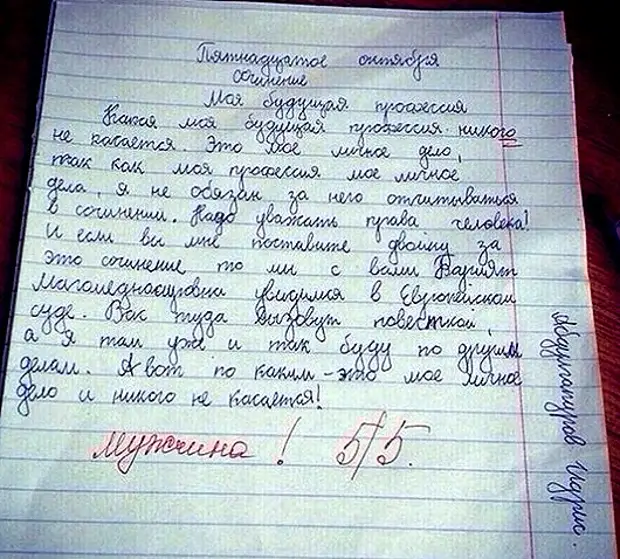 Пятнадцатое октября
Сочинение
Моя будущая профессия
Какая моя будущая профессия никого
не касается. Это мое личное дело,
так как моя профессия мое личное
дела, я не обязан за него отчитываться
в сочинении. Надо уважать права человека!
И если вы мне поставите двойку за
это сочинение то мы с вами
Магомеднасировна увидимся в Европейском
суде. Вас туда вызовут повесткой,
а я там уже и так буду по другим
делам. А вот по каким - это мое личное
дело и никого не касается!
мужчина! 5/5.
Идрис.